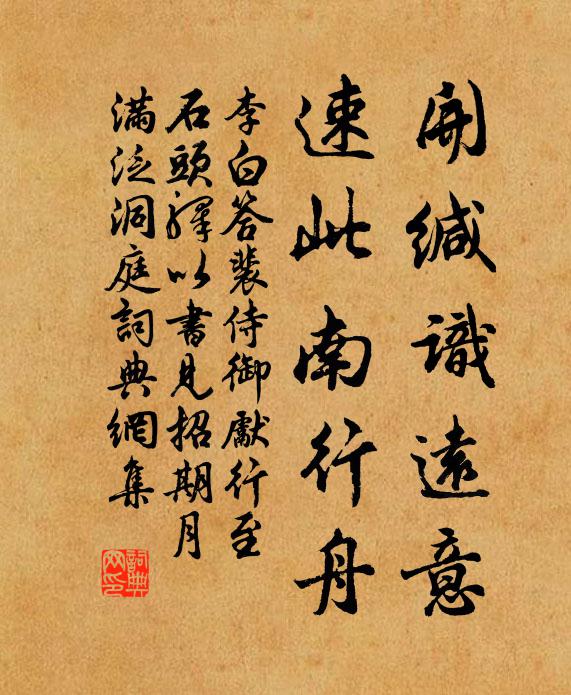 開緘識遠意
速此南行舟
李白答裴侍御獻行至
石頭驛以書見招期月
滿泛洞庭詞典網集
詞典網印